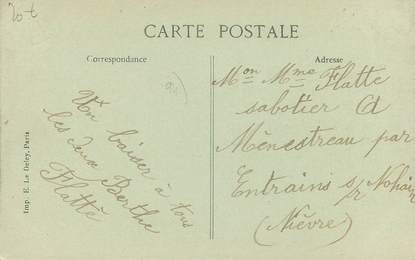 CARTE POSTALE
Correspondance
Adresse
Un baiser à tous
les deux Berthe
Flatté
Mon Mme Flatte
sabotier à
Ménestreau par
Entrains s/ Nohain
(Nièvre)
Imp. E. Le Deley, Paris